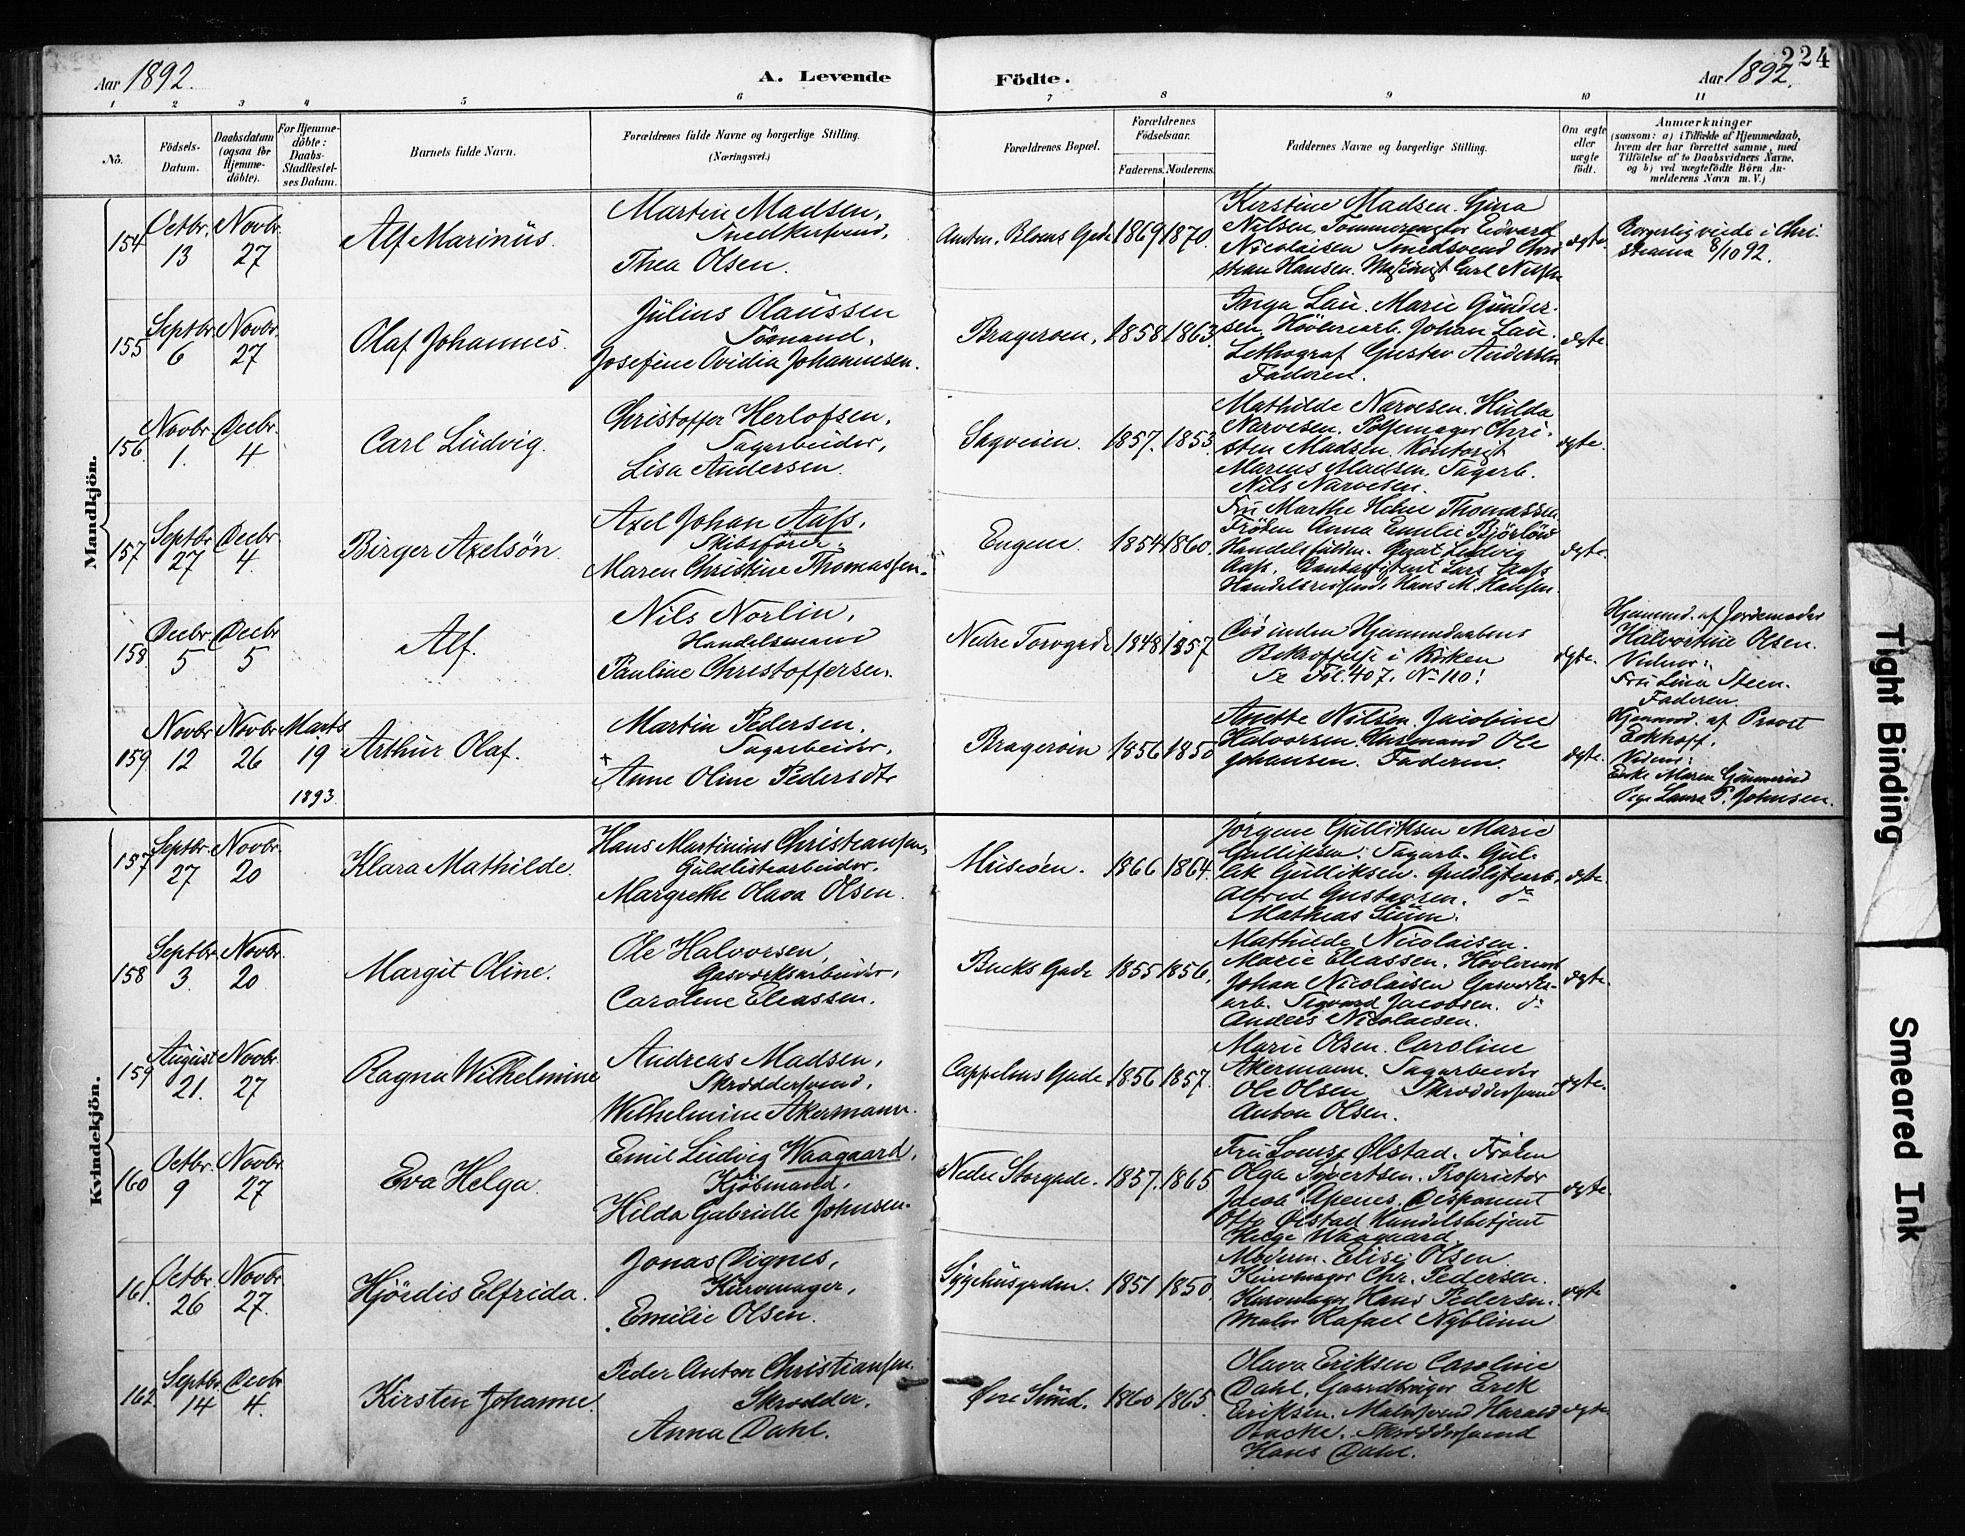 224
Aar 1892.
A. Levende Födte.
Aar 1892.
1 2 3 4 5 6 7 8 9 10 11
No.
Födsels-Datum.
Daabsdatum (ogsaa for Hjemme-döbte).
For Hjemme-döbte: Daabs-Stadfæstel-ses Datum.
Barnets fulde Navn.
Forældrenes fulde Navne og borgerlige Stilling. (Næringsvei.)
Forældrenes Bopæl.
Forældrenes Födselsaar.
Faderens. Moderens.
Faddernes Navne og borgerlige Stilling.
Om ægte eller uægte födt.
Anmærkninger
(saasom: a) i Tilfælde af Hjemmedaab, hvem der har forrettet samme, med Tilföielse af to Daabsvidners Navne, og b) ved uægtefödte Börn An-melderens Navn m. V.)
Mandkjön.
154 Octbr. 13 Novbr. 27
Alf Marinus.
Martin Madsen,
Snedkersvend,
Thea Olsen.
Amtm. Bloms Gade 1869 1870.
Kirstine Madsen. Gina
Nilsen. Tömmermester Edvard
Nicolaisen Smedsvend Chri
stian Hansen. Carl Nilsen
ægte.
Borgerlig viede i Chri
stiania 8/10 92.
155 Septbr. 6 Novbr. 27
Olaf Johannes.
Julius Olaussen
Sömand,
Josefine Ovidia Johannesen.
Bragerøen. 1858 1863.
Inga Lau. Marie Gunder-
sen. Høvleriarb. Johan Lau.
Lithograf Gustav Andersen
Faderen.
ægte.
156. Novbr. 1. Decbr. 4
Carl Ludvig.
Christoffer Herlofsen,
Sagarbeider,
Lisa Andersen.
Sagveien. 1857. 1853.
Mathilde Narvesen. Hulda
Narvesen. Pølsemager Chri-
sten Madsen. Kontorist
Marius Madsen. Sagarb.
Nils Narvesen.
ægte.
157 Septbr. 27 Decbr. 4
Birger Axelsøn.
Axel Johan Aass,
Skibsfører.
Maren Christine Thomassen.
Engene. 1854 1860.
Fru Marthe Helene Thomassen
Frøken Anna Emilie
Ludvig
Aass. Lars Aass
Handelsreisende Hans M. Hansen.
ægte.
158 Decbr. 5 Decbr. 5
Alf.
Nils Norlin,
Handelsmand
Pauline Christoffersen.
Nedre Torvgade 1848 1857
Død inden Hjemmedaabens
Bekræftelse i Kirken
Se Fol. 407. No 110!
ægte.
Hjemmed. af Jordemoder
Halvordine Olsen.
Vidner:
Fru Lina Steen.
Faderen.
159 Novbr 12 Novbr 26 Marts 19 1893.
Arthur Olaf.
Martin Pedersen.
Sagarbeider,
+
Anne Oline Pedersdtr
Bragerøen 1856 1850
Anette Nilsen. Jacobine
Halvorsen. Husmand Ole
Johansen. Faderen.
ægte.
Hjemmed. af Provst
Eckhoff.
Vidner:
Enke Maren
Pige Laura P. Johnsen.
Kvindekjön.
157 Septbr. 27 Novbr. 20
Klara Mathilde.
Hans Martinius Christiansen,
Guldlistearbeider.
Margrethe Olava Olsen.
Museøen. 1866 1864.
Jørgine Gulliksen Marie
Gulliksen. Sagarb. Gul-
lik Gulliksen. Guldlistearb.
Alfred Gustavsen. do
Mathias
ægte.
158 Septbr. 3. Novbr. 20.
Margit Oline.
Ole Halvorsen,
Gasverksarbeider,
Caroline Eliassen.
Bucks Gade 1855 1856.
Mathilde Nicolaisen.
Marie Eliassen. Høvleriarb
Johan Nicolaisen Gasverks-
arb. Sigvard Jacobsen. do
Anders Nicolaisen.
ægte.
159 August 21. Novbr. 27
Ragna Wilhelmine
Andreas Madsen,
Skræddersvend,
Wilhelmine Akermann.
Cappelens Gade 1856 1857.
Marie Olsen. Caroline
Akermann. Sagarbeider
Ole Olsen Skræddersvend
Anton Olsen.
ægte.
160 Octbr. 9 Novbr. 27
Eva Helga.
Emil Ludvig Waagaard,
Kjøbmand,
Hilda Gabrielle Johnsen.
Nedre Storgade. 1857. 1865
Fru Louise Ølstad. Frøken
Olga Syvertsen. Proprietær
Jacob Disponent
Otto Ølstad Handelsbetjent
Helge Waagaard.
ægte.
161 Octbr. 26 Novbr. 27.
Hjørdis Elfrida.
Jonas Dignes,
Kurvmager,
Emilie Olsen.
Sygehusgaden. 1851 1850.
Moderen. Elise Olsen
Kurvmager Chr. Pedersen.
Kurvmager Hans Pedersen.
Maler Rafael Nyblinn
ægte
162 Septbr 14 Decbr 4.
Kirsten Johanne.
Peder Anton Christiansen.
Skrædder.
Anna Dahl.
Øvre Sund. 1860 1865.
Olava Eriksen Caroline
Dahl. Gaardbruger Erik
Eriksen. Malersvend Harald
Bache. Skræddersvend
Hans Dahl.
ægte
Tight Binding
Smeared Ink